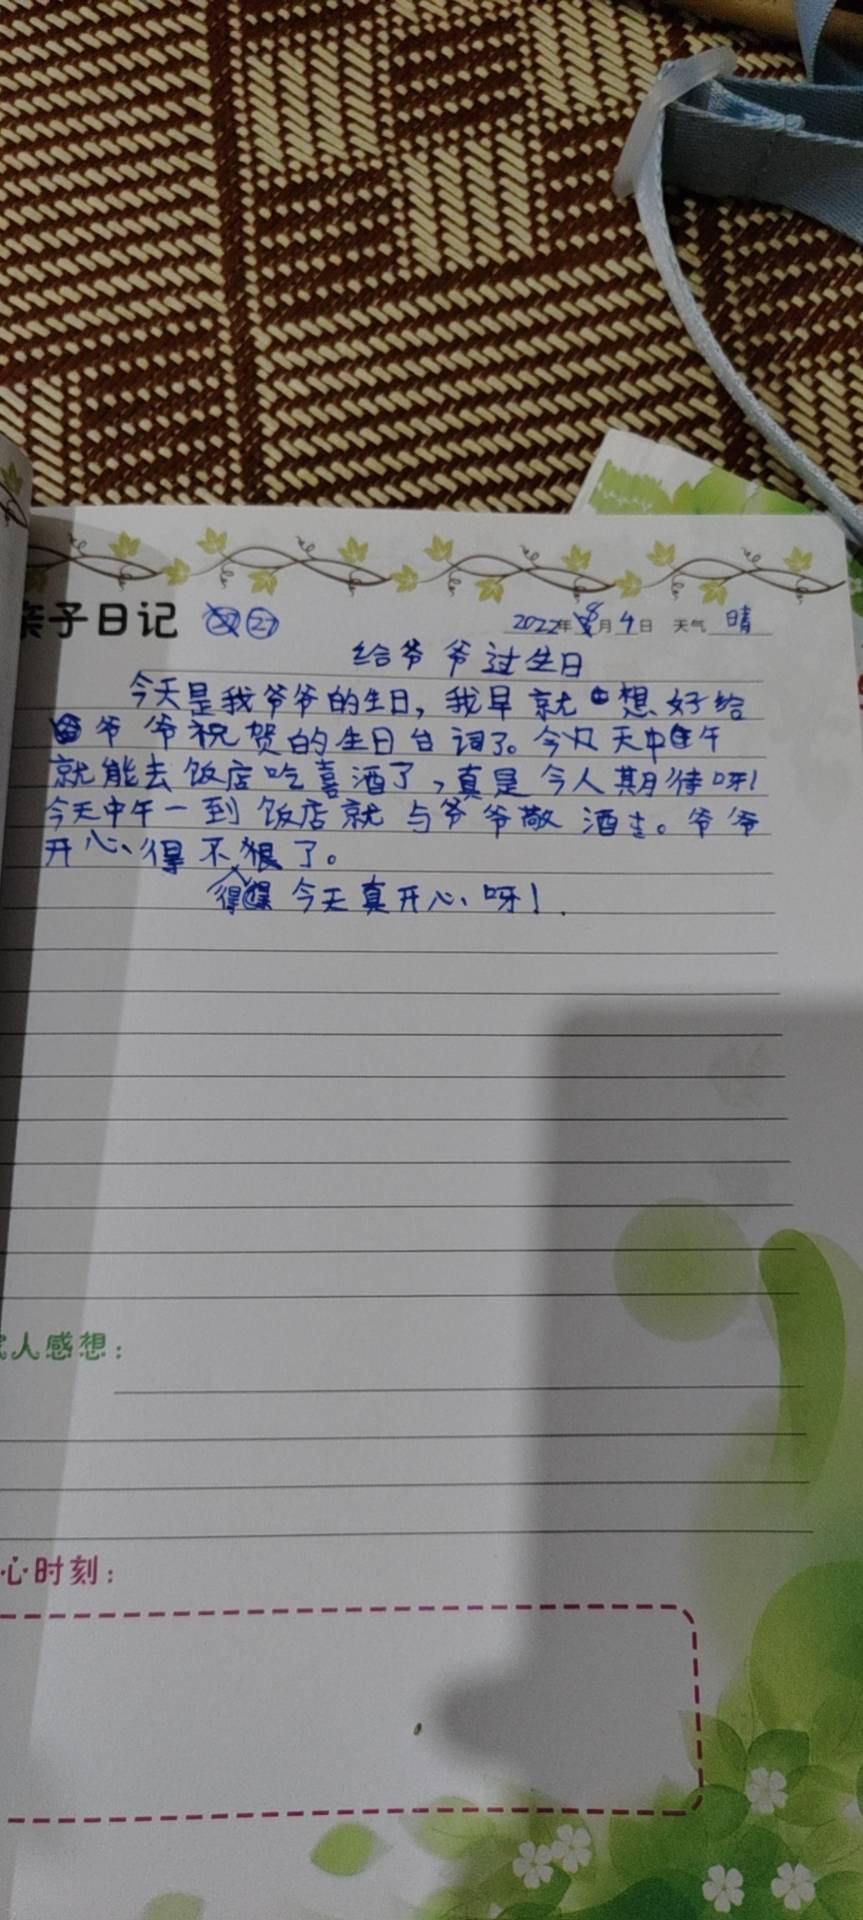 亲子日记 27 2022年8月4日 天气 晴
给爷爷过生日
今天是我爷爷的生日，我早就想好给
爷爷祝贺的生日台词了。今天中午
就能去饭店吃喜酒了，真是今人期待呀！
今天中午一到饭店就与爷爷敬酒去。爷爷
开心得不得狠了。
今天真开心呀！
人感想：
心时刻：